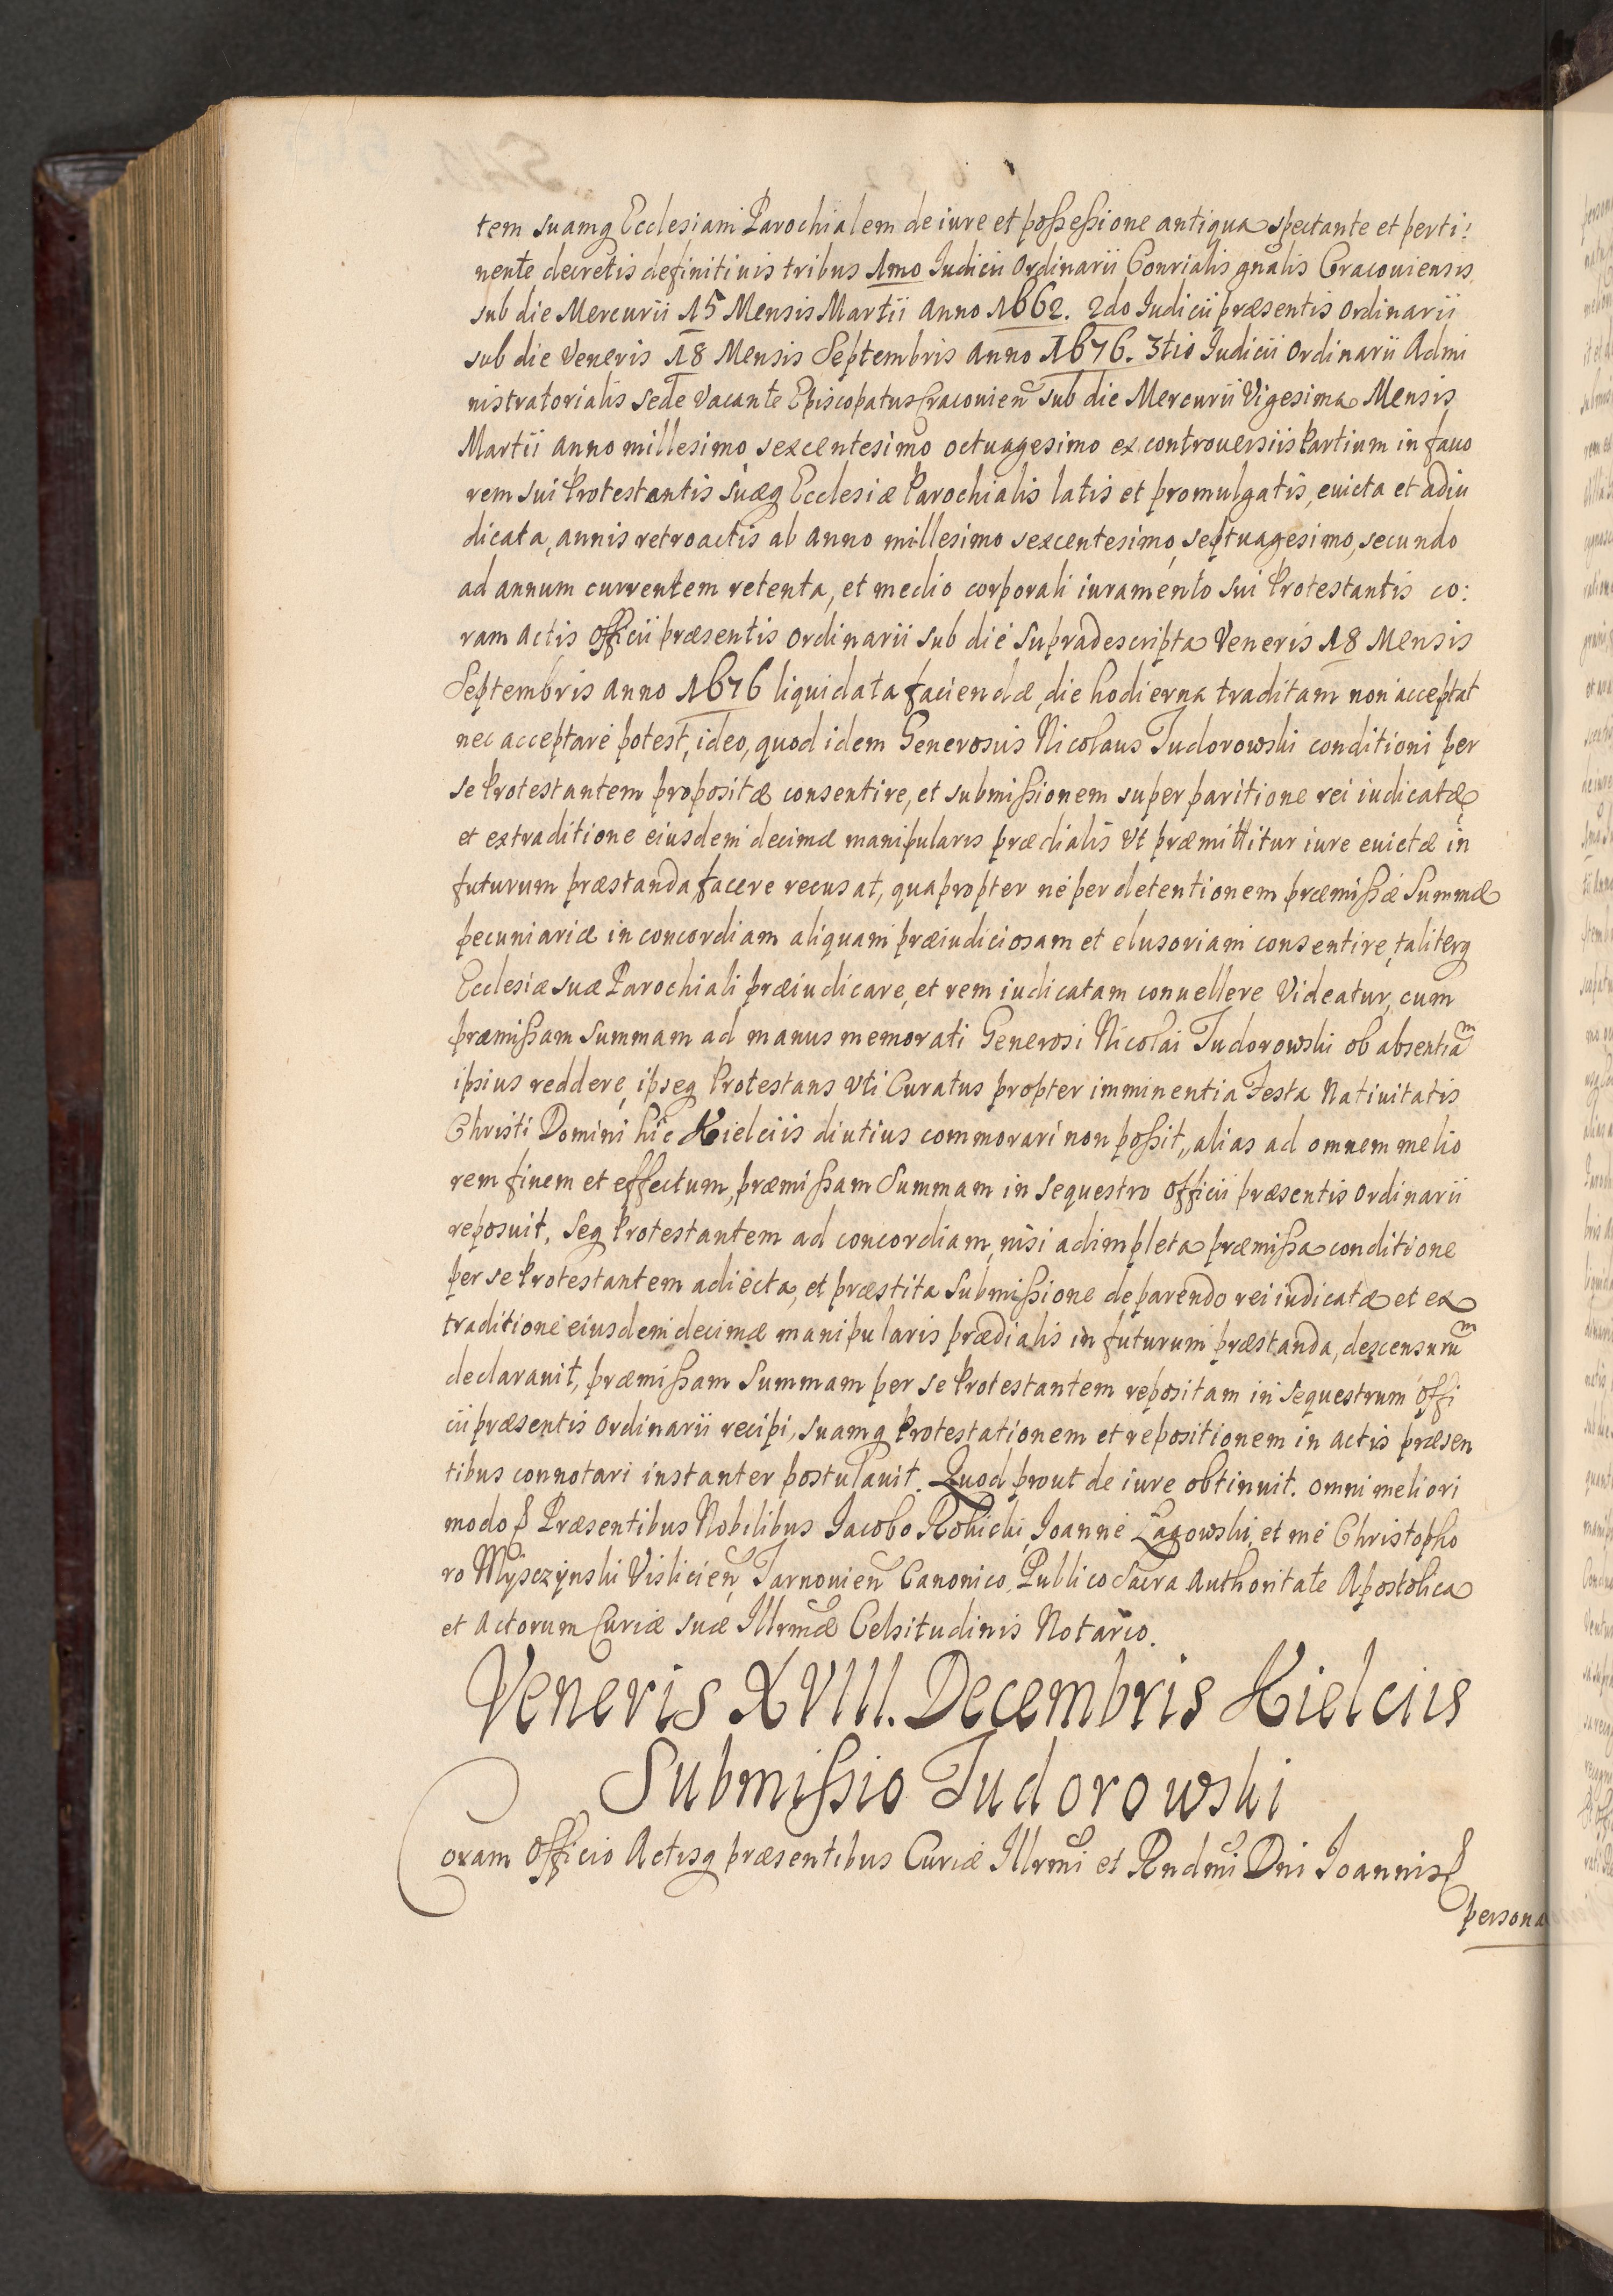 tem suamq Ecclesiam Parochialem de iure et possessione antiqua spectante et perti:
nente decretis definitiuis tribus 1mo Iudicii Ordinarii Conrialis gnalis Cracouiensis
sub die Mercurii 15 Mensis Martii Anno 1662. 2do Iudicii præsentis Ordinarii
sub die Veneris 18 Mensis Septembris Anno 1676. 3tio Iudicii Ordinarii Admi
nistratorialis Sede Vacante Episcopatus Cracouien sub die Mercurii Vigesima Mensis
Martii anno millesimo sexcentesimo octuagesimo ex controuersiis Partium in fauo
rem sui Protestantis suæq Ecclesiæ Parochialis latis et promulgatis, euicta et adiu
dicata, annis retroactis ab Anno millesimo sexcentesimo septuagesimo, secundo
ad annum currentem retenta, et medio corporali iuramento sui Protestantis co:
ram Actis Officii præsentis Ordinarii sub die Supradescripta Veneris 18 Mensis
Septembris Anno 1676 liquidata faciendæ, die hodierna traditam non acceptat
nec acceptare potest, ideo, quod idem Generosus Nicolaus Tudorowski conditioni per
se Protestantem propositæ consentire, et submissionem super paritione rei iudicatæ
et extraditione eiusdem decimæ manipularis prædialis Vt præmittitur iure euictæ in
futurum præstanda facere recusat, quapropter ne per detentionem præmissæ Summæ
pecuniariæ in concordiam aliquam præiudiciosam et elusoriam consentire, taliterq
Ecclesiæ suæ Parochiali præiudicare, et rem iudicatam conuellere Videatur, cum
præmissam Summam ad manus memorati Generosi Nicolai Tudorowski ob absentiam
ipsius reddere, ipseq Protestans Vti Curatus propter imminentia Festa Natiuitatis
Christi Domini hic Kielciis diutius commorari non possit, alias ad omnem melio
rem finem et effectum, præmissam Summam in sequestro Officii præsentis Ordinarii
reposuit, Seq Protestantem ad concordiam, nisi adimpleta præmissa conditione
per se Protestantem adiecta, et præstita Submissione de parendo rei iudicatæ et ex
traditione eiusdem decimæ manipularis prædialis in futurum præstanda, descensurum
declarauit, præmissam Summam per se Protestantem repositam in Sequestrum Offi
cii præsentis Ordinarii recipi, suamq Protestationem et repositionem in actis præsen
tibus connotari instanter postulauit. Quod prout de iure obtinuit. Omni meliori
modo Præsentibus Nobilibus Iacobo Rokicki, Joanne Łagowski, et me Christopho
ro Mysczynski Vislicien, Tarnouien Canonico, Publico Sacra Authoritate Apostolica
et Actorum Curiæ suæ Illrmæ Celsitudinis Notario.
Veneris XVIII. Decembris Kielciis
Submissio Tudorowski
Coram Officio Actisq præsentibus Curiæ Illrmi et Rndmi Dni Ioannis
persona